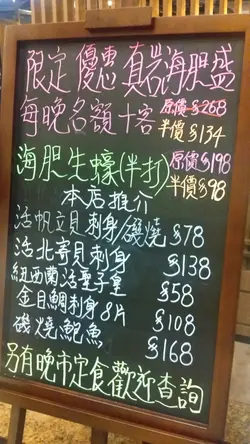 限定優惠真岩海胆盛
每晚名額十客
原價$268
半價$134
海胆生蠔(半打)
原價$198
半價$98
本店推介
活帆立貝刺身/磯燒 $78
活北寄貝刺身 $138
紐西蘭活聖子皇 $58
金目鯛刺身8片 $108
磯燒鮑魚 $168
另有晚市定食歡迎查詢